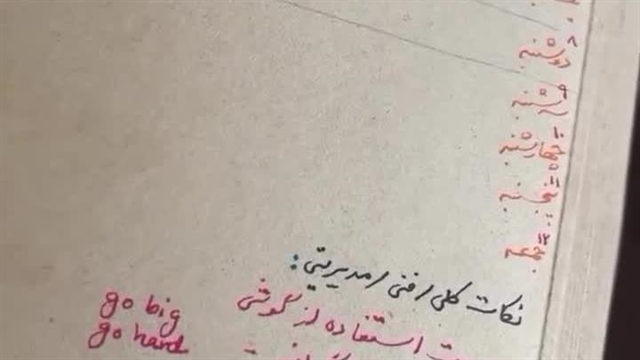 ۸
دوشنبه
۹
سه‌شنبه
۱۰
چهارشنبه
۱۱
پنجشنبه
۱۲
جمعه
نکات کلی / فنی / مدیریتی:
استفاده از گوشی
go big
go hard